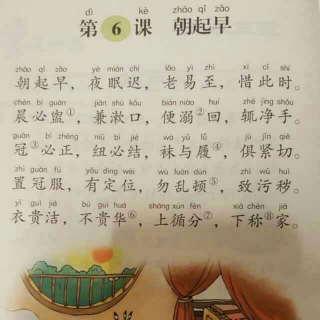 dì kè zhāo qǐ zǎo
第 6 课 朝起早
zhāo qǐ zǎo yè mián chí lǎo yì zhì xī cǐ shí
朝起早，夜眠迟，老易至，惜此时。
chén bì guàn jiān shù kǒu biàn niào huí zhé jìng shǒu
晨必盥①，兼漱口，便溺②回，辄净手。
guān bì zhèng niǔ bì jié wà yǔ lǚ jù jǐn qiè
冠③必正，纽必结，袜与履④，俱紧切。
zhì guān fú yǒu dìng wèi wù luàn dùn zhì wū huì
置冠服，有定位，勿乱顿⑤，致污秽。
yī guì jié bú guì huá shàng xún fèn xià chèn jiā
衣贵洁，不贵华⑥，上循分⑦，下称⑧家。